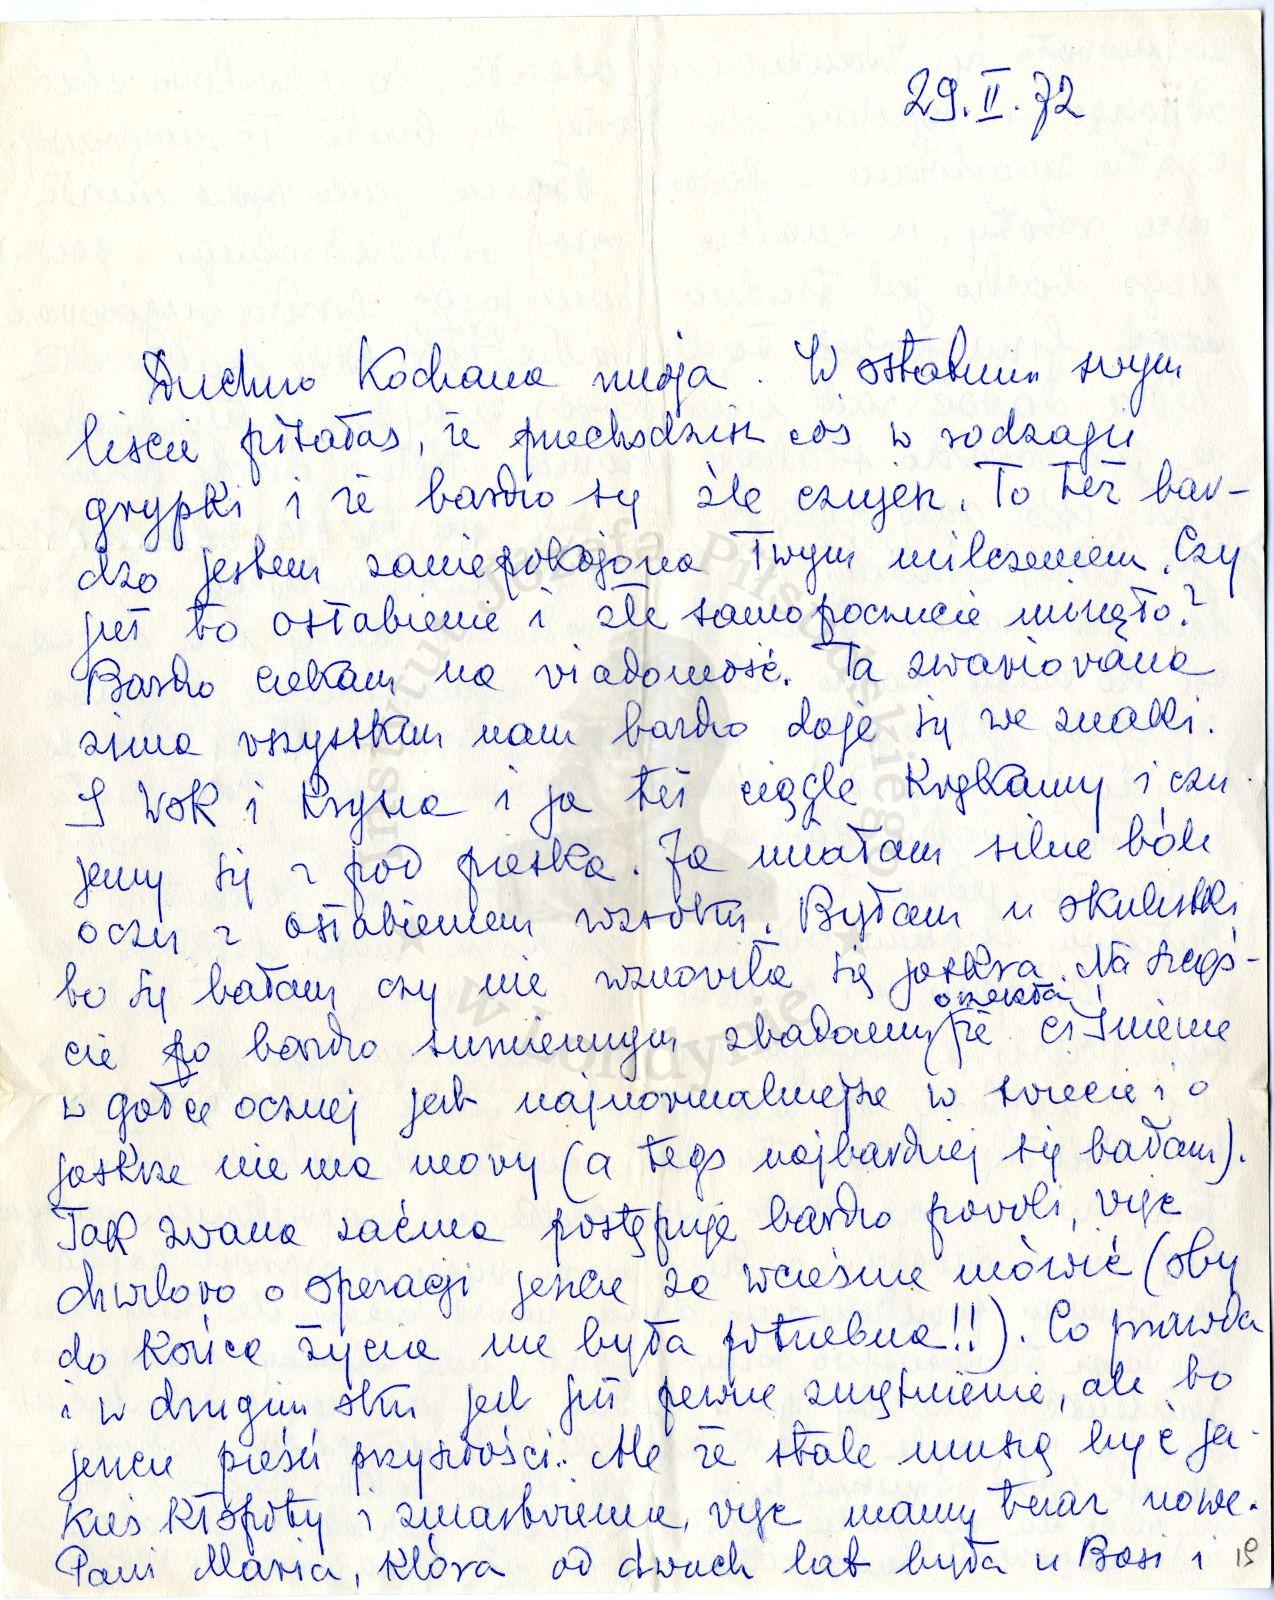 29.II.72
Duchno Kochana moja. W ostatnim swym
liście pisałaś, że przechodzisz coś w rodzaju
grypki i że bardzo się źle czujesz. To też bar-
dzo jestem zaniepokojona Twym milczeniem. Czy
już to osłabienie i złe samopoczucie minęło?
Bardzo czekam na wiadomość. Ta zwariowana
zima wszystkim nam bardzo daje się we znaki.
I Wok i Krysia i ja też ciągle kwękamy i czu-
jemy się z pod pieska. Ja miałam silne bóle
oczu z osłabieniem wzroku. Byłam u okulistki
bo się bałam czy nie wznowiła się jaskra. Na szczęś-
cie po bardzo sumiennym zbadaniu orzekła że ciśnienie
w gałce ocznej jest najnormalniejsze w świecie i o
jaskrze nie ma mowy (a tego najbardziej się bałam).
Tak zwana zaćma postępuje bardzo powoli, więc
chwilowo o operacji jeszcze za wcześnie mówić (oby
do końca życia nie była potrzebna!!). Co prawda
i w drugim oku jest już pewne zmętnienie, ale to
jeszcze pieśń przyszłości.. Ale że stale muszą być ja-
kieś kłopoty i zmartwienia, więc mamy teraz nowe.
Pani Maria, która od dwuch lat była u Basi i
19
Instytut Józefa Piłsudskiego
w Londynie